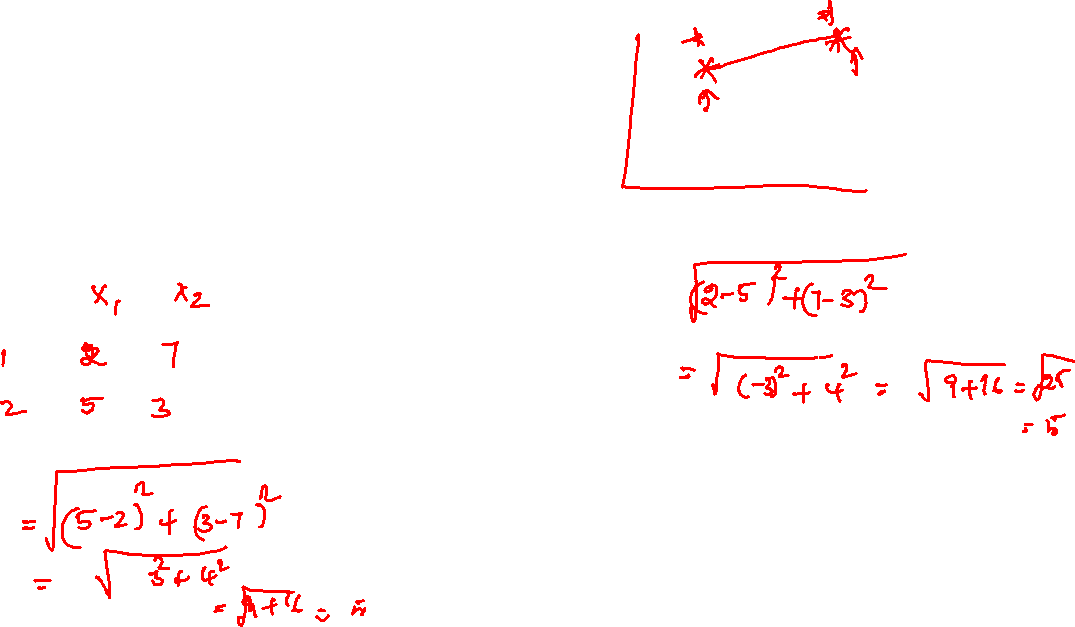 x₁ x₂
1 2 7
2 5 3
= √(5-2)² + (3-7)²
= √3² + 4²
= √9+16 = 5
√(2-5)² + (7-3)²
= √(-3)² + 4² = √9+16 = √25
= 5